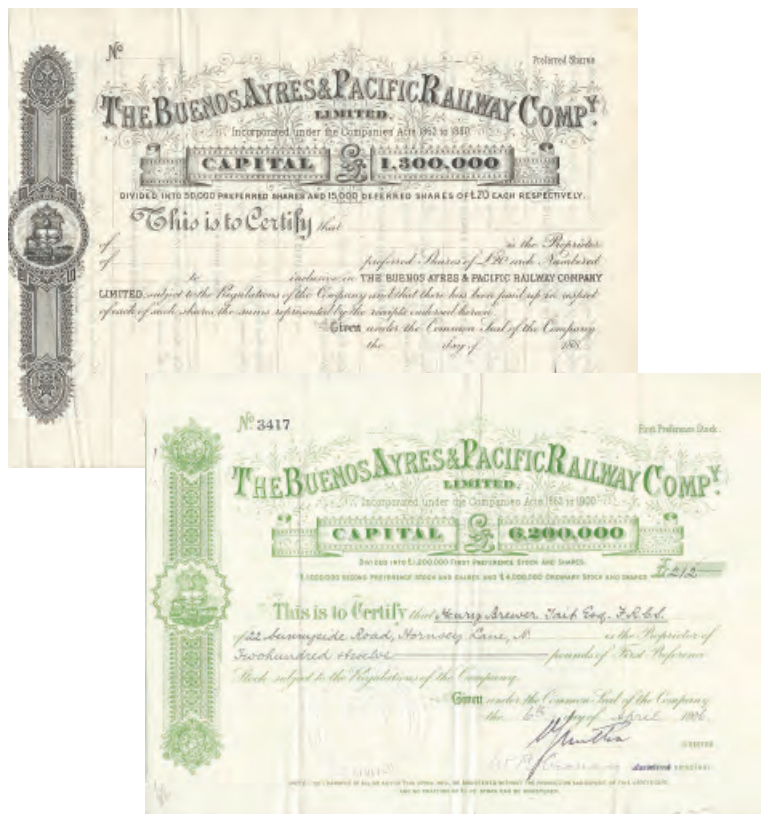 Nº
Preferred Shares
THE BUENOS AYRES & PACIFIC RAILWAY COMPY.
LIMITED.
Incorporated under the Companies Acts 1862 to 1880
CAPITAL £ 1,300,000
DIVIDED INTO 50,000 PREFERRED SHARES AND 15,000 DEFERRED SHARES OF £20 EACH RESPECTIVELY.
This is to Certify that
of is the Proprietor
of preferred Shares of £20 each Numbered
to inclusive in THE BUENOS AYRES & PACIFIC RAILWAY COMPANY
LIMITED, subject to the Regulations of the Company and that there has been paid up in respect
of each of such shares the sums represented by the receipts endorsed hereon.
Given under the Common Seal of the Company
the day of 188
Nº 3417
First Preference Stock.
THE BUENOS AYRES & PACIFIC RAILWAY COMPY.
LIMITED.
Incorporated under the Companies Acts 1862 to 1900
CAPITAL £ 6,200,000
DIVIDED INTO £1,200,000 FIRST PREFERENCE STOCK AND SHARES.
£1,000,000 SECOND PREFERENCE STOCK AND SHARES AND £4,000,000 ORDINARY STOCK AND SHARES £212
This is to Certify that Henry Brewer Tait Esq. F.R.C.S.
of 22 Sunnyside Road, Hornsey Lane, N. is the Proprietor of
Two hundred & twelve pounds of First Preference
Stock subject to the Regulations of the Company.
Given under the Common Seal of the Company
the 6th day of April 1906